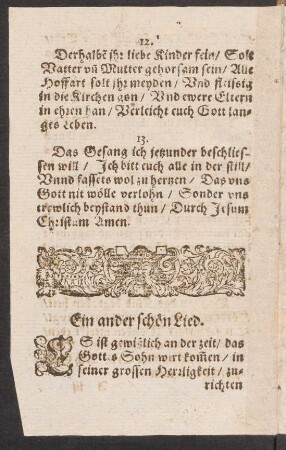 12.
Derhalbẽ jhr liebe Kinder fein / Solt
Vatter vñ Mutter gehorsam sein / Alle
Hoffart solt jhr meyden / Vnd fleissig
in die Kirchen gon / Vnd ewere Eltern
in ehren han / Verleicht euch Gott lan-
ges Leben.
13.
Das Gesang ich jetzunder beschlies-
sen will / Ich bitt euch alle in der still /
Vnnd fassets wol zu hertzen / Das vns
Gott nit wölle verlohn / Sonder vns
trewlich beystand thun / Durch Jesum
Christum Amen.
Ein ander schön Lied.
ES ist gewißlich an der zeit / das
Gottes Sohn wirt kom̃en / in
seiner grossen Herrligkeit / zu-
richten